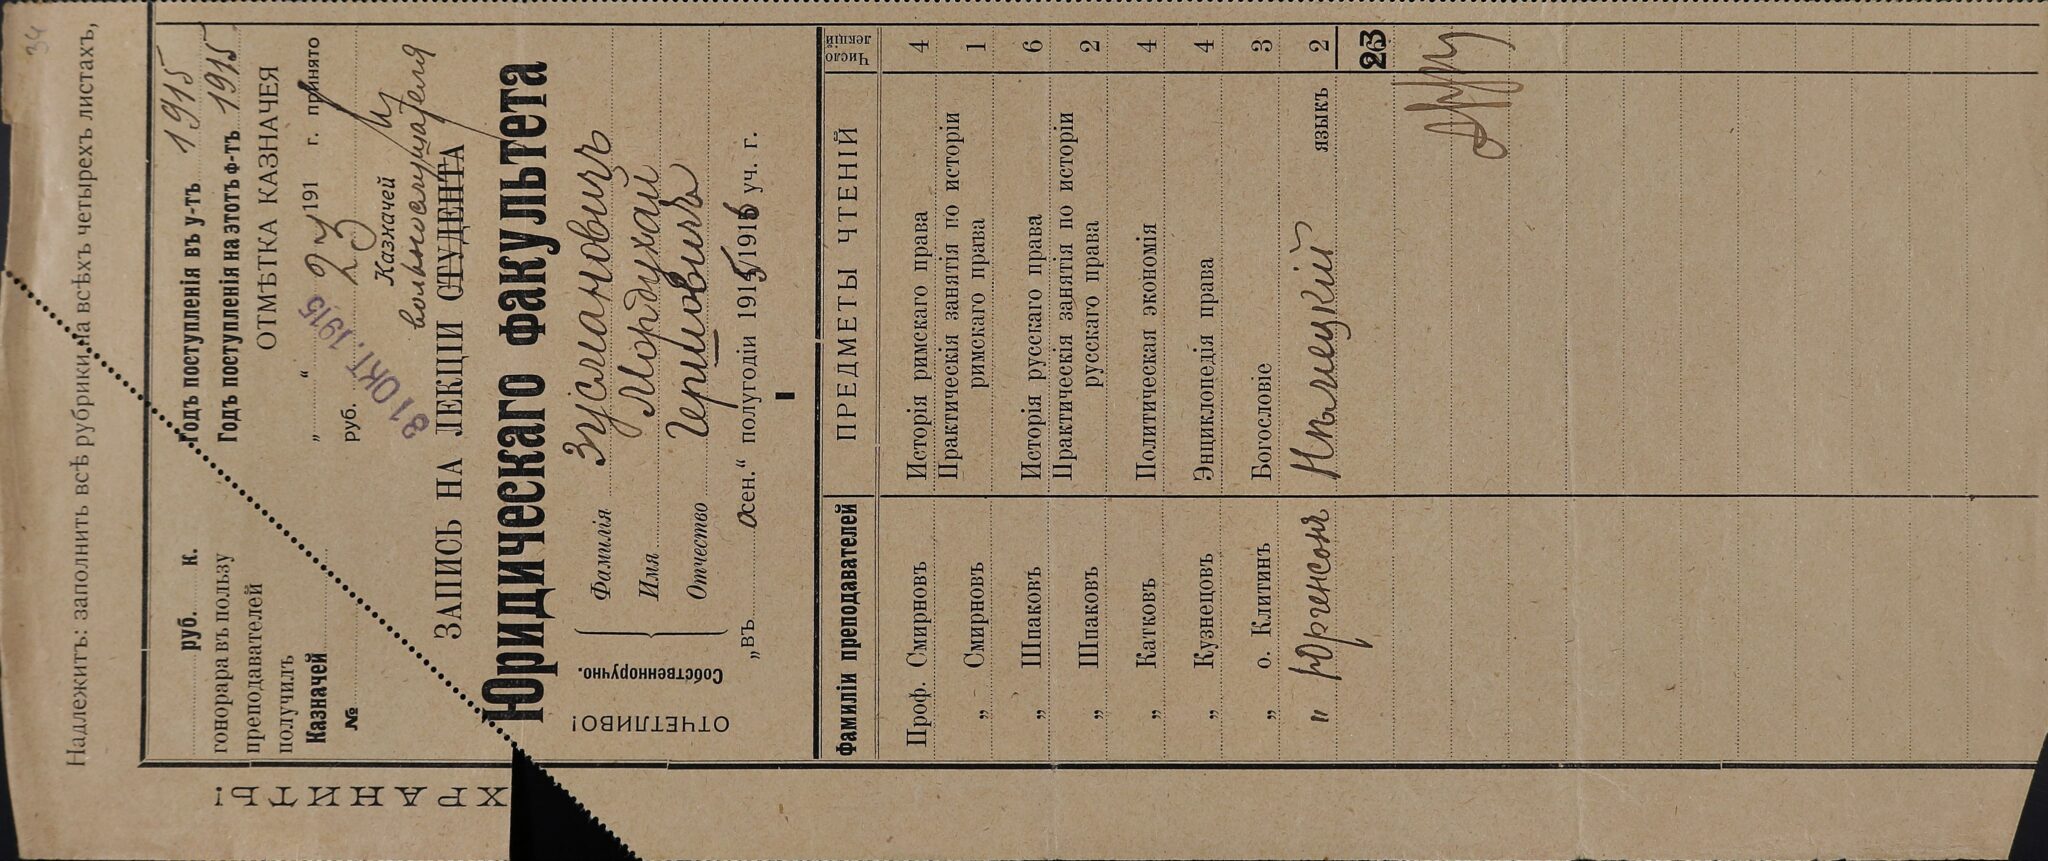 34
Надлежитъ: заполнить всѣ рубрики на всѣхъ четырехъ листахъ,
ХРАНИТЬ!
руб. к.
гонорара въ пользу
преподавателей
получилъ
Казначей
№
Годъ поступленія въ у-тъ 1915
Годъ поступленія на этотъ ф-тъ 1915
ОТМѢТКА КАЗНАЧЕЯ
„ “ 191 г. принято
руб. 23
31 ОКТ. 1915
Казначей
вольнослушателя
ЗАПИСЬ НА ЛЕКЦІИ СТУДЕНТА
Юридическаго факультета
ОТЧЕТЛИВО!
Собственноручно.
Фамилія Зусмановичъ
Имя Мордухай
Отчество Гершовичъ
„въ осен.“ полугодіи 1915/1916 уч. г.
I
Фамиліи преподавателей ПРЕДМЕТЫ ЧТЕНІЙ Число лекцій
Проф. Смирновъ Исторія римскаго права 4
„ Смирновъ Практическія занятія по исторіи римскаго права 1
„ Шпаковъ Исторія русскаго права 6
„ Шпаковъ Практическія занятія по исторіи русскаго права 2
„ Катковъ Политическая экономія 4
„ Кузнецовъ Энциклопедія права 4
„ о. Клитинъ Богословіе 3
„ Юргенсонъ Нѣмецкій языкъ 2